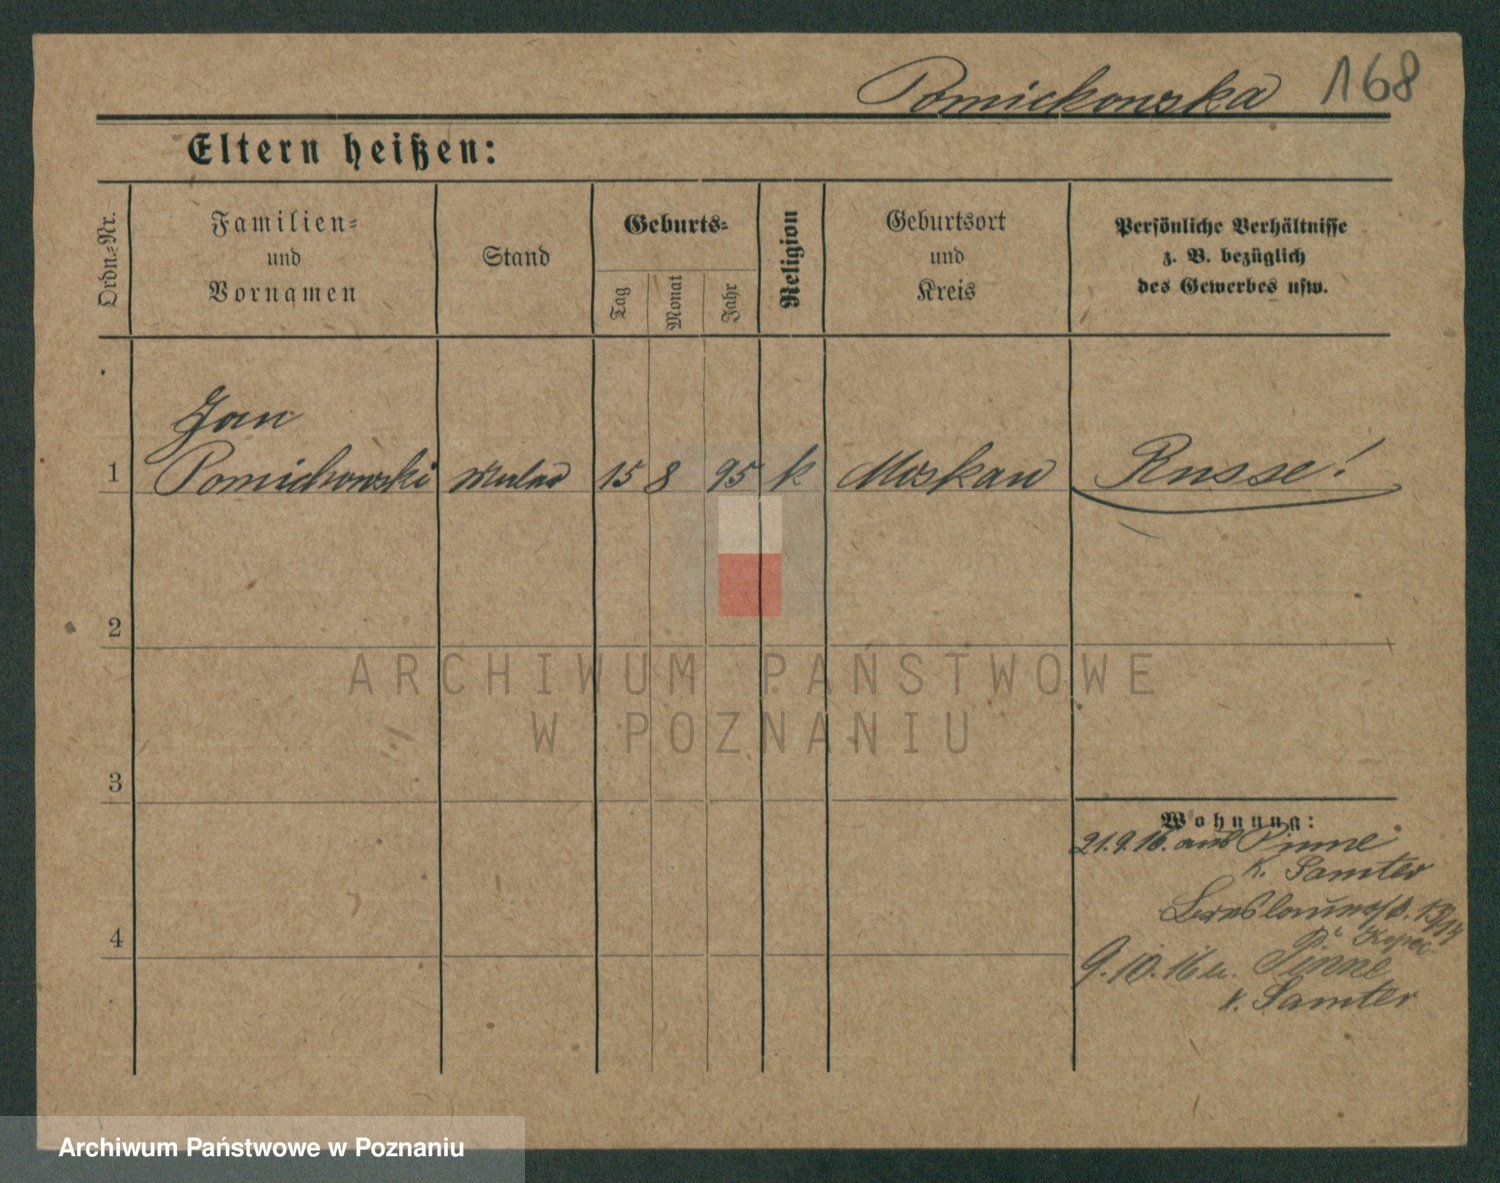 Pomickowska 168
Eltern heißen:
Ordn.=Nr.
Familien=
und
Vornamen
Stand
Geburts=
Tag
Monat
Jahr
Religion
Geburtsort
und
Kreis
Persönliche Verhältnisse
z. B. bezüglich
des Gewerbes usw.
Jan
1 Pomickowski 15 8 95 k Moskau Russe!
2
ARCHIWUM PAŃSTWOWE
W POZNANIU
3
Wohnung:
21.9.16. aus Pinne
K. Samter
Breslauerstr. 13/14
4
9.10.16 Pinne
K. Samter
Archiwum Państwowe w Poznaniu